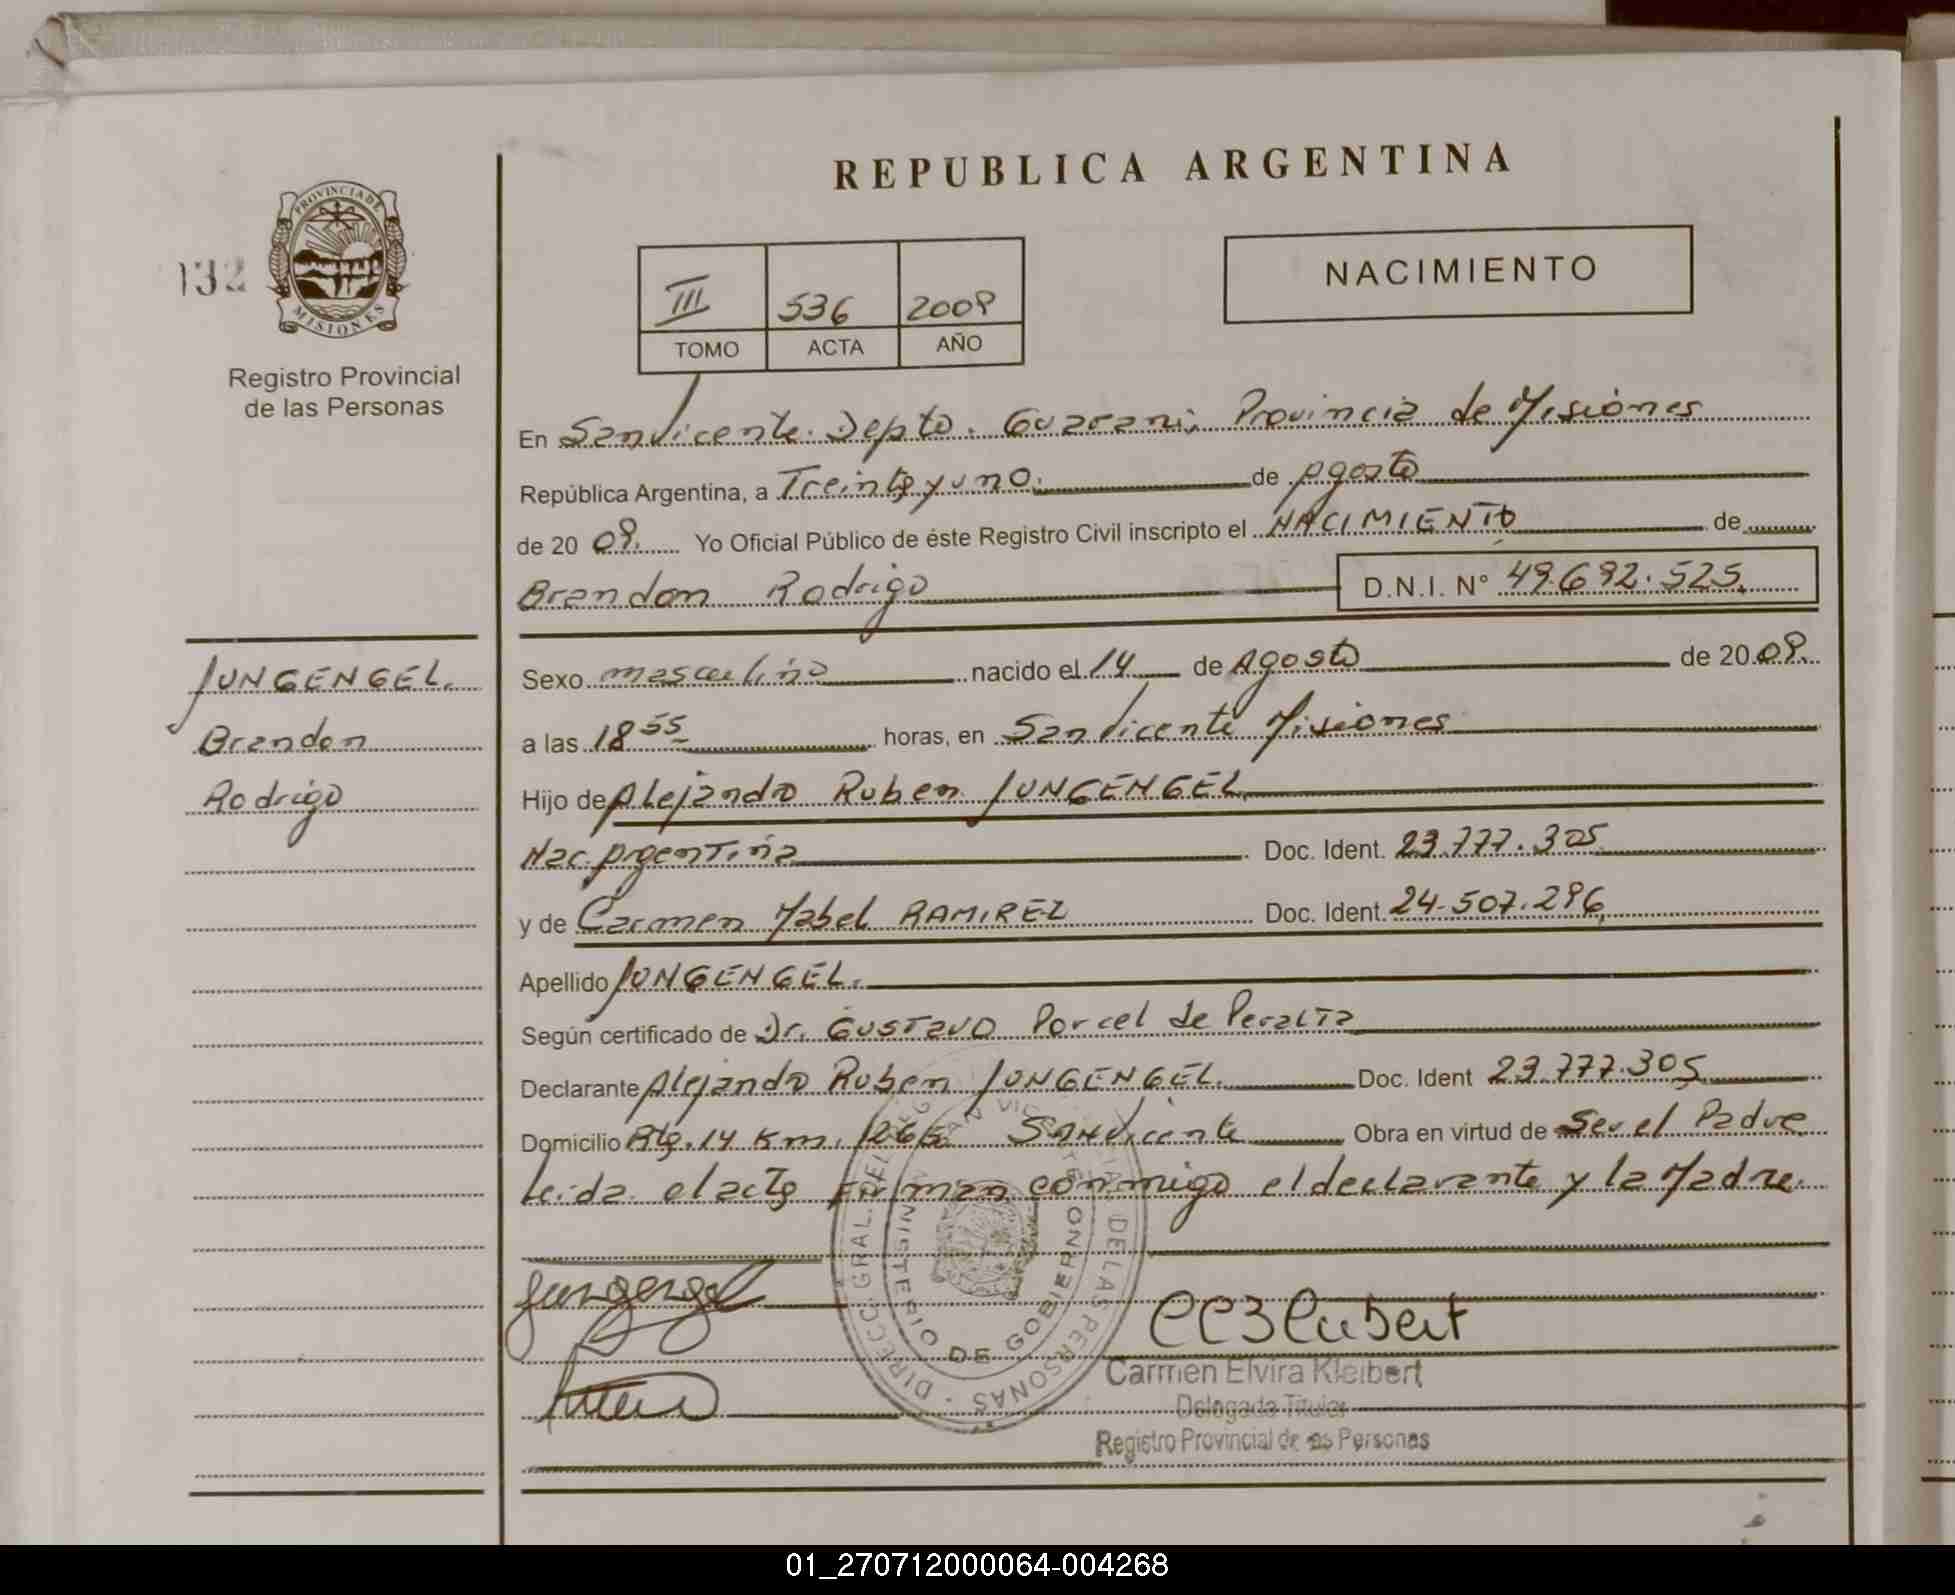 REPUBLICA ARGENTINA
132
PROVINCIA DE
MISIONES
Registro Provincial
de las Personas
III 536 2009
TOMO ACTA AÑO
NACIMIENTO
En San Vicente. Depto. Guarani, Provincia de Misiones
República Argentina, a Treinta y uno. de Agosto
de 20 09. Yo Oficial Público de éste Registro Civil inscripto el NACIMIENTO de
Brandon Rodrigo D.N.I. N° 49.692.525.
JUNGENGEL.
Brandon
Rodrigo
Sexo masculino nacido el 14 de Agosto de 20 09.
a las 18 55 horas, en San Vicente Misiones
Hijo de Alejandro Ruben JUNGENGEL
Nac. Argentina Doc. Ident. 23.777.305
y de Carmen Mabel RAMIREZ Doc. Ident. 24.507.296,
Apellido JUNGENGEL.
Según certificado de Dr. Gustavo Porcel de Peralta
Declarante Alejandro Ruben JUNGENGEL. Doc. Ident 23.777.305
Domicilio Rta. 14 Km. 1266 San Vicente Obra en virtud de Ser el Padre
Leida el acta firman conmigo el declarante y la Madre.
DIRECC. GRAL. DE LAS PERSONAS
MINISTERIO DE GOBIERNO
Jungengel
Carmen Elvira Kleibert
Delegada Titular
Registro Provincial de las Personas
01_270712000064-004268